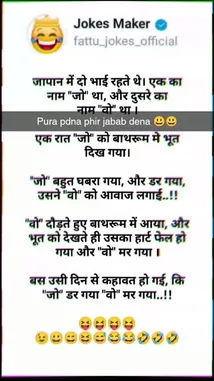 Jokes Maker
fattu_jokes_official
जापान में दो भाई रहते थे। एक का
नाम "जो" था, और दुसरे का
नाम "वो" था।
Pura pdna phir jabab dena 😃😃
एक रात "जो" को बाथरूम मे भूत
दिख गया।
"जो" बहुत घबरा गया, और डर गया,
उसने "वो" को आवाज लगाई..!!
"वो" दौड़ते हुए बाथरूम में आया, और
भूत को देखते ही उसका हार्ट फेल हो
गया और "वो" मर गया ।
बस उसी दिन से कहावत हो गई, कि
"जो" डर गया "वो" मर गया..!!